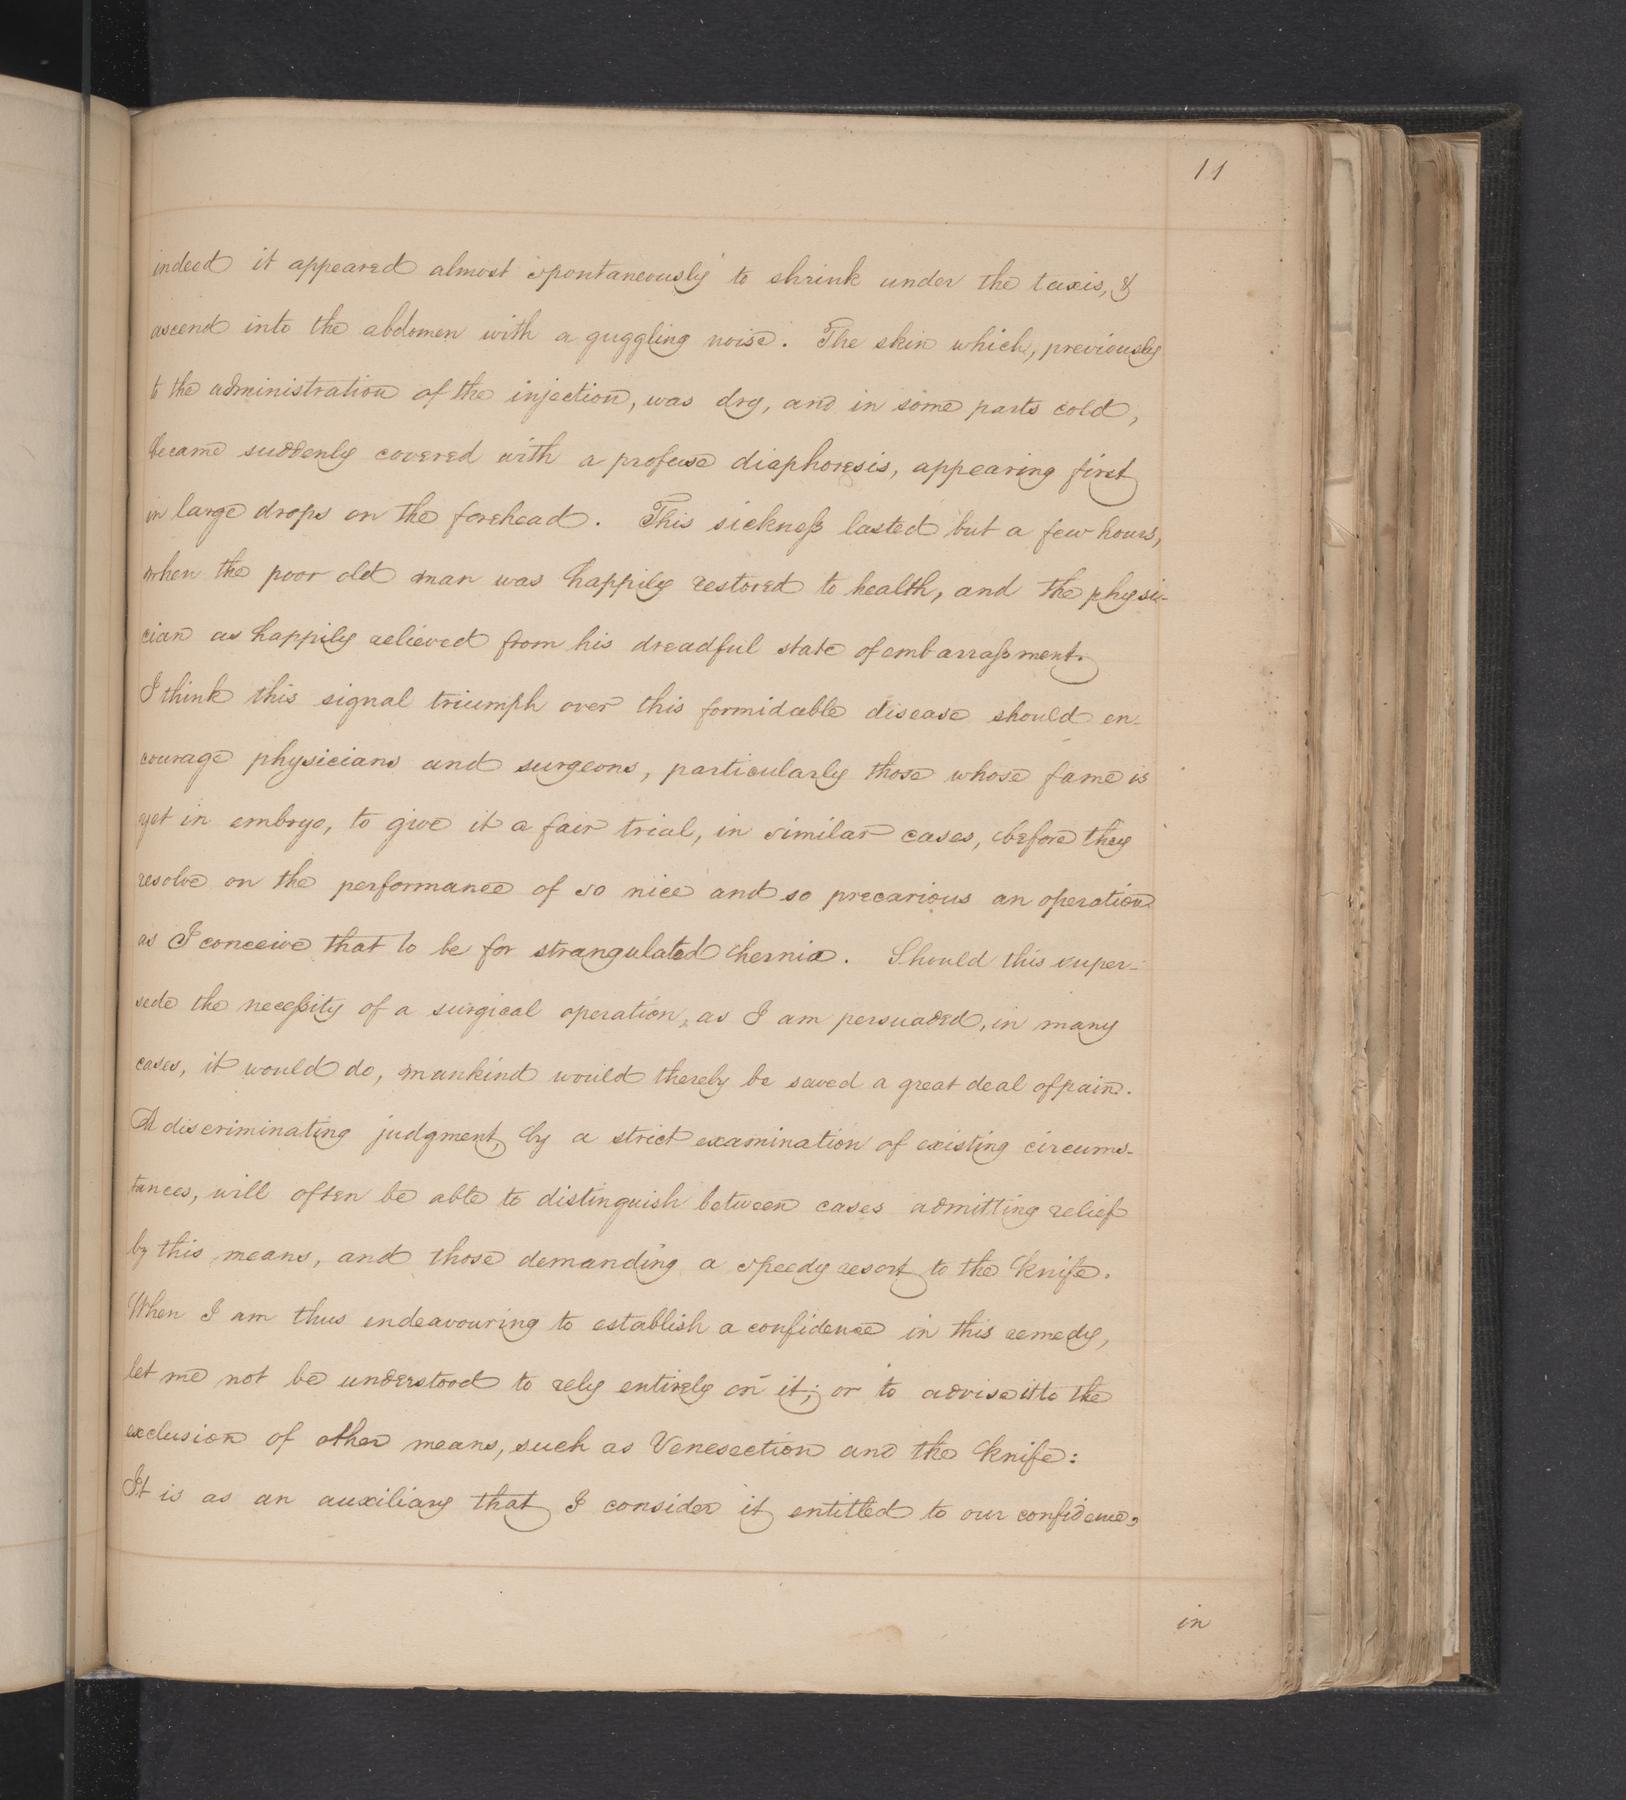 11
indeed it appeared almost spontaneously to shrink under the taxis, &
ascend into the abdomen with a guggling noise. The skin which, previously
to the administration of the injection, was dry, and in some parts cold,
became suddenly covered with a profuse diaphoresis, appearing first
in large drops on the forehead. This sickneſs lasted but a few hours,
when the poor old man was happily restored to health, and the physi-
cian as happily relieved from his dreadful state of embarraſsment.
I think this signal triumph over this formidable disease should en-
courage physicians and surgeons, particularly those whose fame is
yet in embryo, to give it a fair trial, in similar cases, before they
resolve on the performance of so nice and so precarious an operation
as I conceive that to be for strangulated hernia. Should this super-
sede the neceſsity of a surgical operation, as I am persuaded, in many
cases, it would do, mankind would thereby be saved a great deal of pain.
A discriminating judgment, by a strict examination of existing circums-
tances, will often be able to distinguish between cases admitting relief
by this means, and those demanding a speedy resort to the knife.
When I am thus endeavouring to establish a confidence in this remedy,
let me not be understood to rely entirely on it; or to advise it to the
exclusion of other means, such as Venesection and the knife:
It is as an auxiliary that I consider it entitled to our confidence,
in